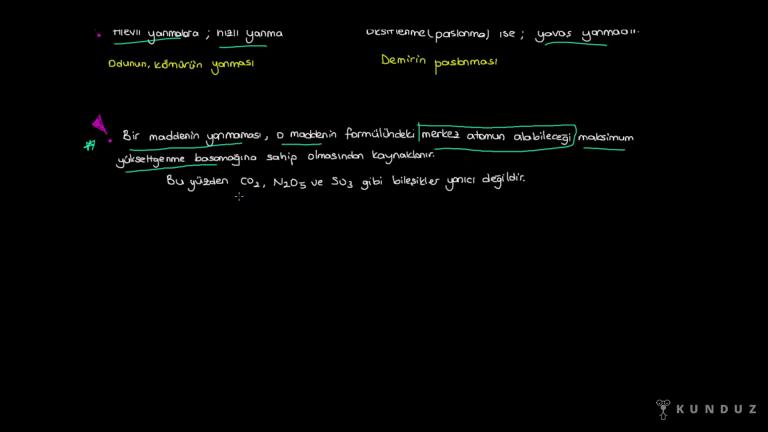 Alevli yanmalara ; hızlı yanma
oksitlenme (paslanma) ise ; yavaş yanmadır.
Odunun, kömürün yanması
Demirin paslanması
Bir maddenin yanmaması, o maddenin formülündeki merkez atomun alabileceği maksimum
yükseltgenme basamağına sahip olmasından kaynaklanır.
Bu yüzden CO2, N2O5 ve SO3 gibi bileşikler yanıcı değildir.
KUNDUZ